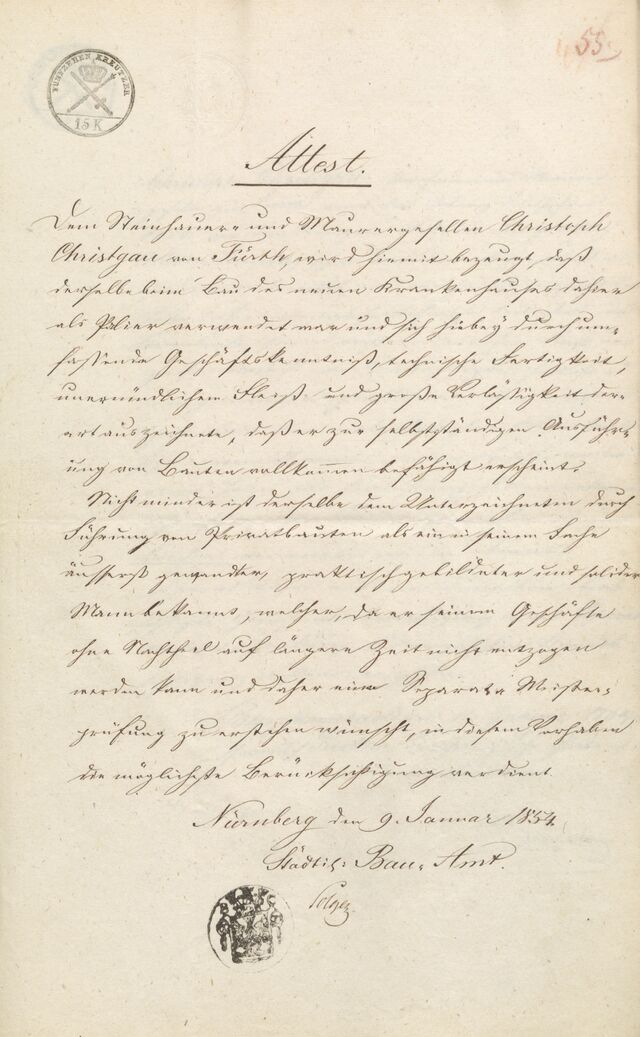 55
FÜNFZEHEN KREUTZER
15 K
Attest.
Dem Steinhauer- und Maurergesellen Christoph
Christgau von Fürth, wird hiemit bezeugt, daß
derselbe beim Bau des neuen Krankenhauses dahier
als Palier verwendet war und sich hiebey durch um-
fassende Geschäftskenntniß, technische Fertigkeit,
unermüdlichem Fleiß und große Verläßigkeit der-
art auszeichnete, daß er zur selbstständigen Ausführ-
ung von Bauten vollkommen befähigt erscheint.
Nicht minder ist derselbe dem Unterzeichneten durch
Führung von Privatbauten als ein in seinem Fache
äusserst gewandter, praktisch gebildeter und solider
Mann bekannt, welcher, da er seinem Geschäfte
ohne Nachtheil auf längere Zeit nicht entzogen
werden kann und daher eine Separat-Meister-
prüfung zu erstehen wünscht, in diesem Vorhaben
die möglichste Berücksichtigung verdient
Nürnberg den 9. Januar 1854.
Städtisch: Bau-Amt.
Solger